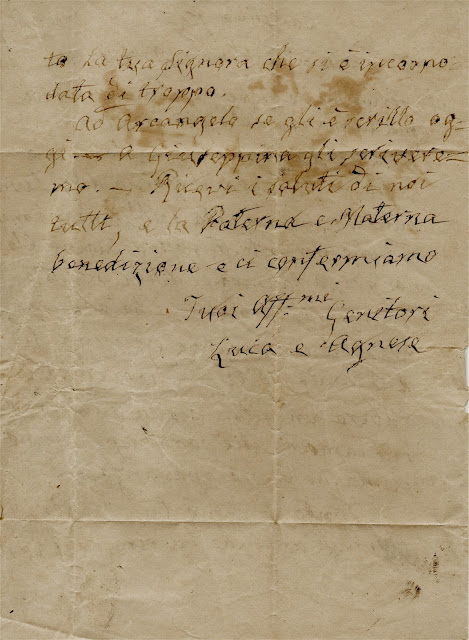 to la tua Signora che si è incomo-
data di troppo.
Ad Arcangelo se gli è scritto og-
gi — a Giuseppina gli scrivere-
mo. — Ricevi i saluti di noi
tutti, e la Paterna e Materna
benedizione e ci confermiamo
Tuoi Aff.mi Genitori
Luca e Agnese